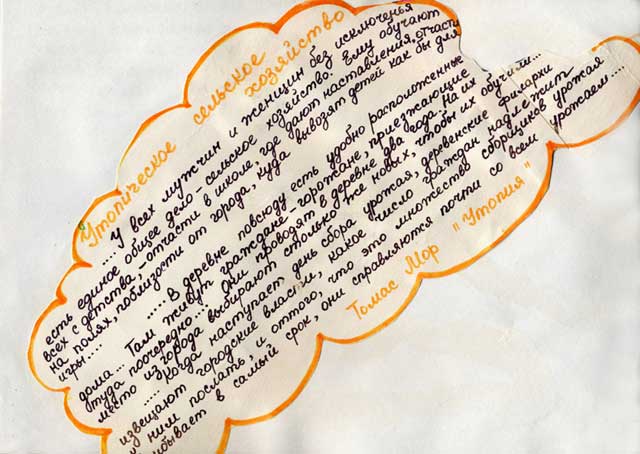 Утопическое сельское
хозяйство
... У всех мужчин и женщин без исключенья
есть единое общее дело - сельское хозяйство. Ему обучают
всех с детства, - отчасти в школе, где дают наставления, отчасти
на полях поблизости от города, куда вывозят детей как бы для
игры....
.... В деревне повсюду есть удобно расположенные
дома... Там живут граждане-горожане, приезжающие
туда поочередно... Они проводят в деревне два года. На их
место из города выбирают столько же новых, чтобы их обучили...
.... Когда наступает день сбора урожая, деревенские филархи
извещают городские власти, какое число граждан надлежит
к ним послать, и оттого, что это множество сборщиков урожая
ибывает в самый срок, они справляются почти со всем урожаем....
Томас Мор "Утопия"